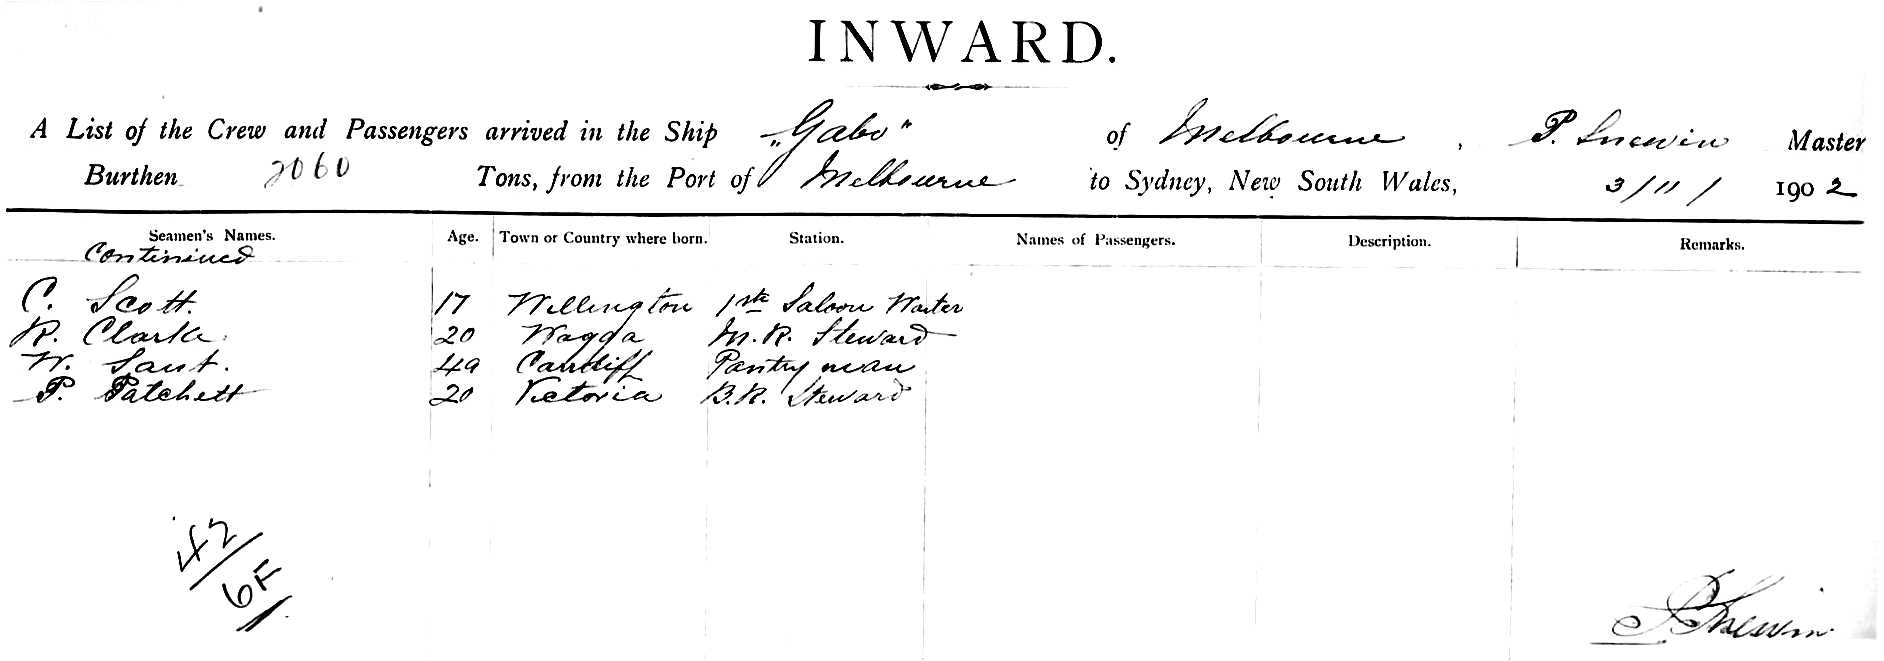 INWARD.
A List of the Crew and Passengers arrived in the Ship "Gabo" of Melbourne, P. Snewin Master
Burthen 2060 Tons, from the Port of Melbourne to Sydney, New South Wales, 3/11/1902
Seamen's Names. Age. Town or Country where born. Station. Names of Passengers. Description. Remarks.
Continued
C. Scott. 17 Wellington 1st Saloon Waiter
R. Clarke. 20 Wagga M.R. Steward
W. Saut. 49 Cardiff Pantryman
P. Patchett 20 Victoria B.R. Steward
42
6F
P Snewin